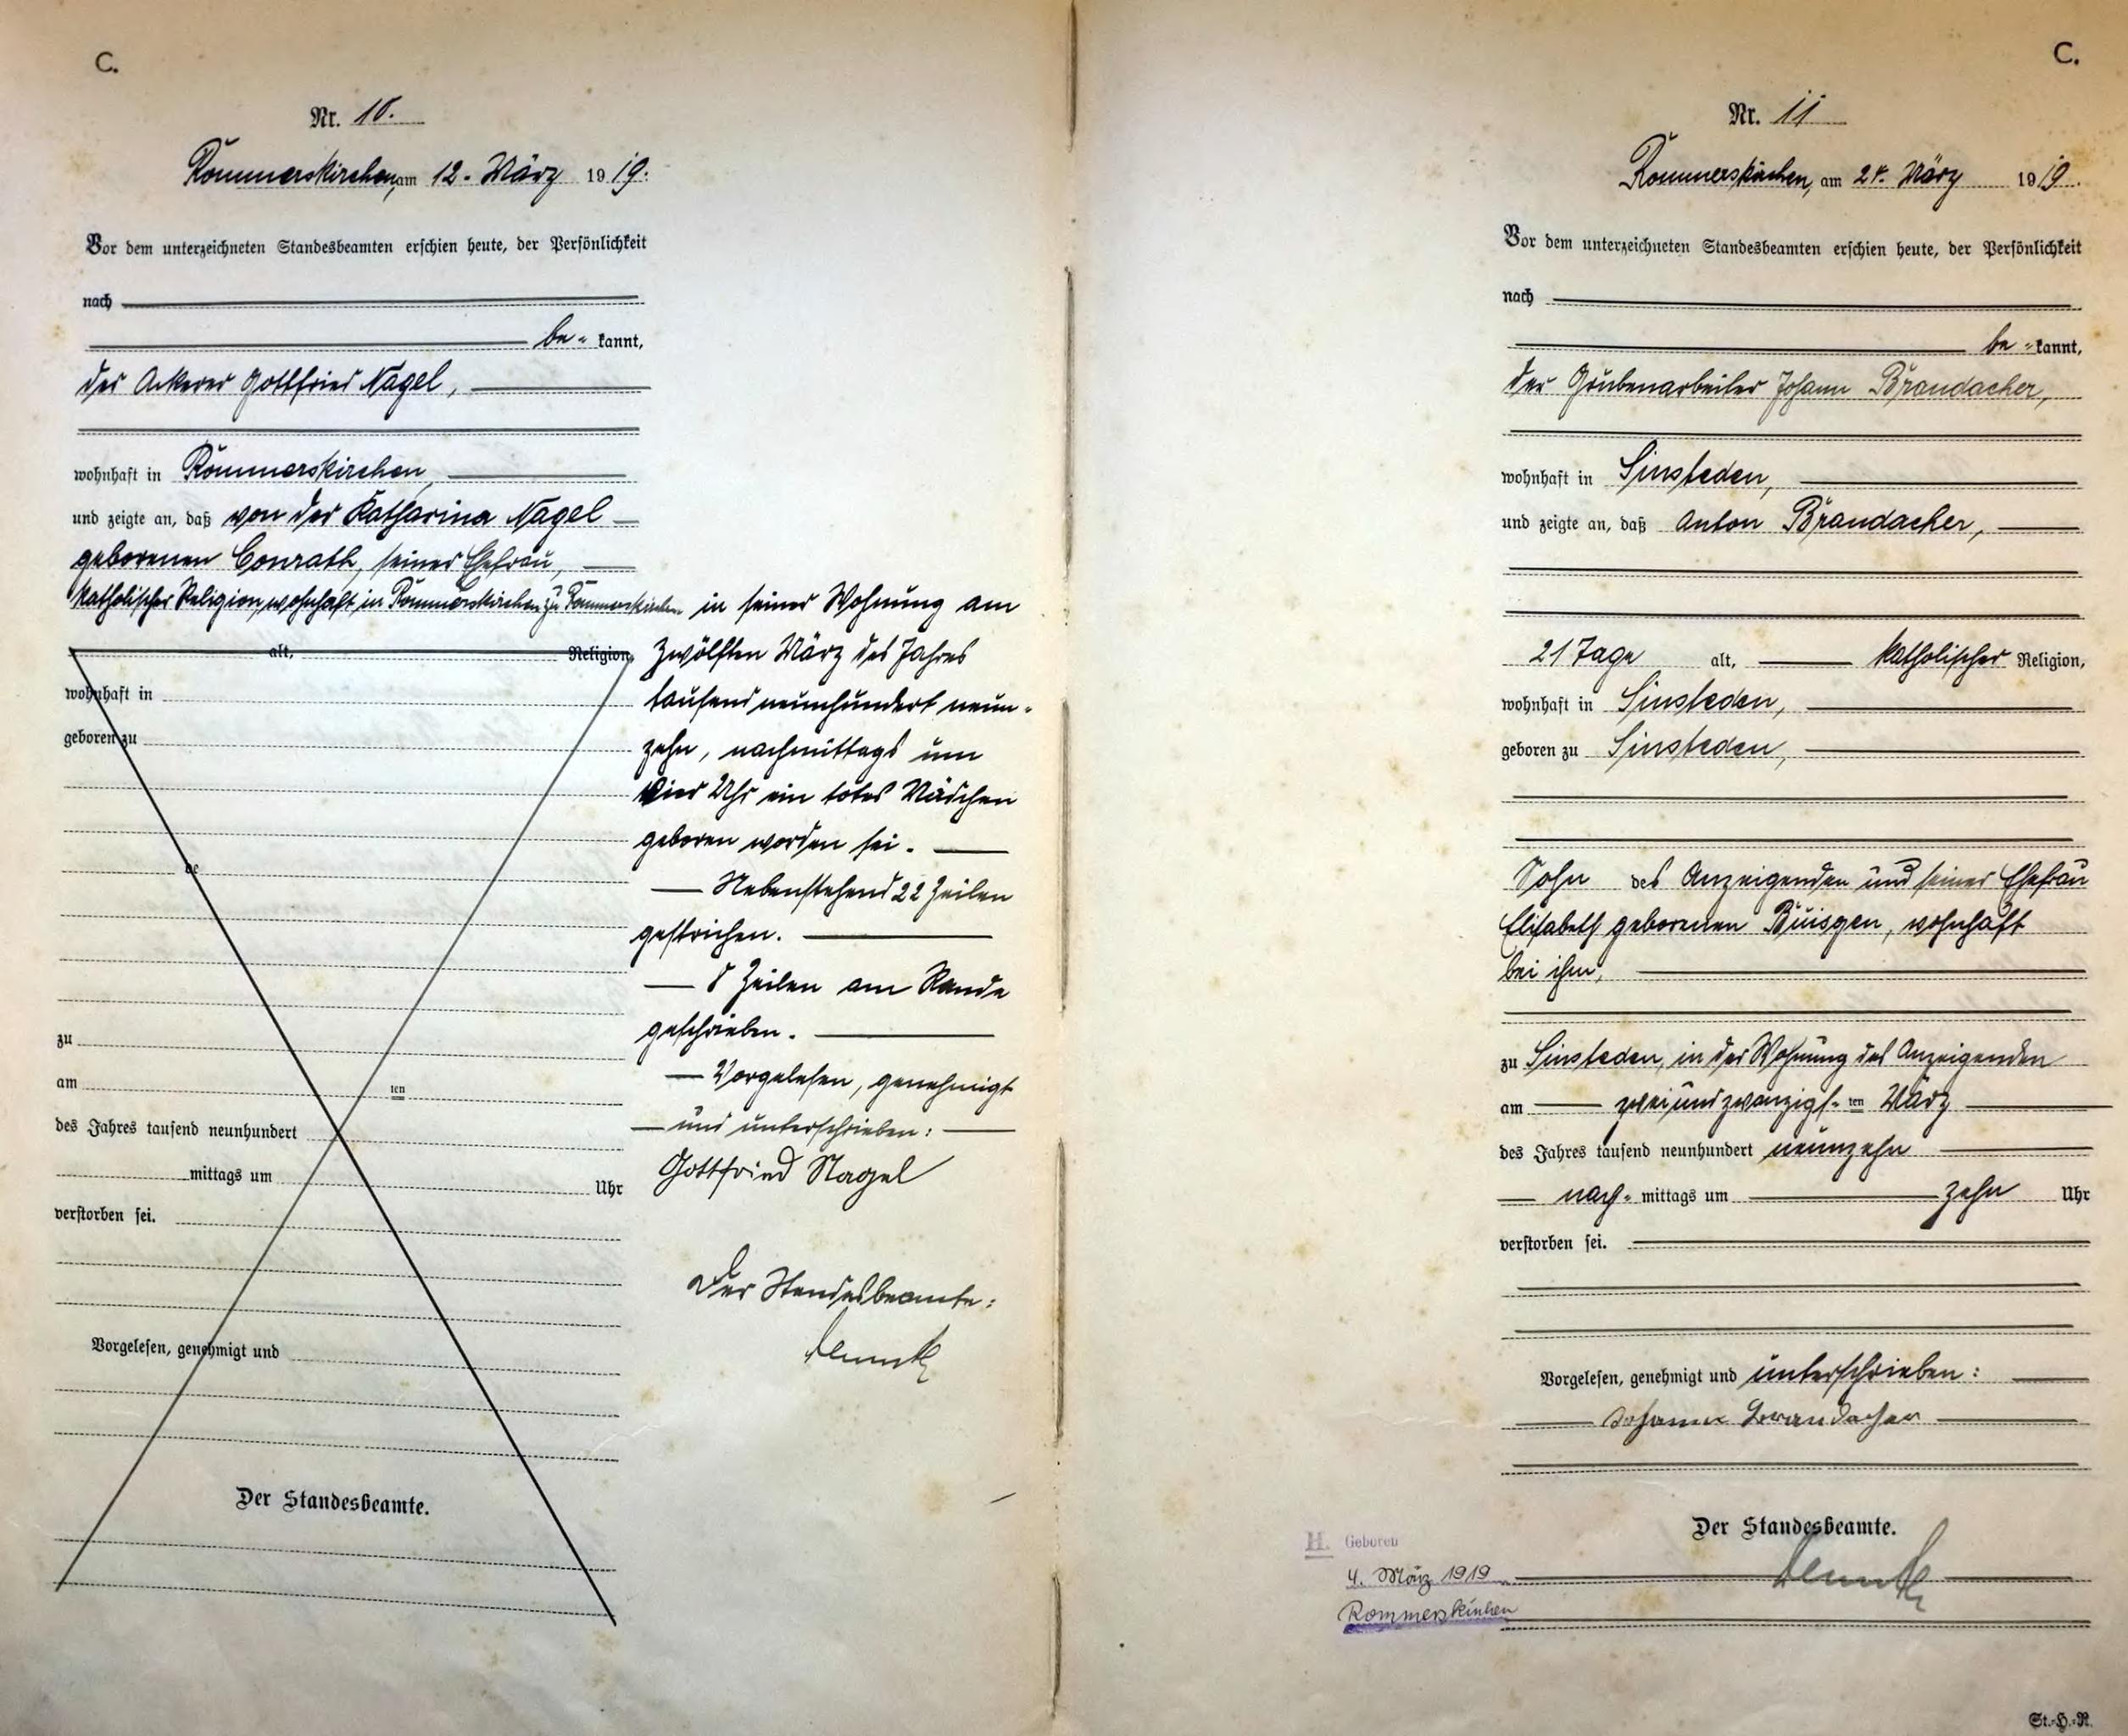 C.
Nr. 10.
Rommerskirchen, am 12. März 1919.
Vor dem unterzeichneten Standesbeamten erschien heute, der Persönlichkeit
nach
be- kannt,
der Ackerer Gottfried Nagel,
wohnhaft in Rommerskirchen,
und zeigte an, daß von der Katharina Nagel
geborenen Conrath, seiner Ehefrau,
katholischer Religion, wohnhaft in Rommerskirchen zu Rommerskirchen in seiner Wohnung am
alt, Religion,
zwölften März des Jahres
wohnhaft in
tausend neunhundert neun-
geboren zu
zehn, nachmittags um
vier Uhr ein totes Mädchen
geboren worden sei.
de
Nebenstehend 22 Zeilen
gestrichen.
8 Zeilen am Rande
geschrieben.
zu
am ten
Vorgelesen, genehmigt
des Jahres tausend neunhundert
und unterschrieben:
mittags um Uhr
Gottfried Nagel
verstorben sei.
Der Standesbeamte:
Vorgelesen, genehmigt und
Der Standesbeamte.
C.
Nr. 11
Rommerskirchen, am März 1919.
Vor dem unterzeichneten Standesbeamten erschien heute, der Persönlichkeit
nach
be- kannt,
der Grubenarbeiter Johann Brandacher,
wohnhaft in Sinsteden,
und zeigte an, daß Anton Brandacher,
21 Tage alt, katholischer Religion,
wohnhaft in Sinsteden,
geboren zu Sinsteden,
Sohn des Anzeigenden und seiner Ehefrau
Elisabeth geborenen Büisgen, wohnhaft
bei ihm,
zu Sinsteden, in der Wohnung des Anzeigenden
am zweiundzwanzigs- ten März
des Jahres tausend neunhundert neunzehn
nach- mittags um zehn Uhr
verstorben sei.
Vorgelesen, genehmigt und unterschrieben:
Johann Brandacher
Der Standesbeamte.
H. Geboren
4. März 1919
Rommerskirchen
St.-H.-R.